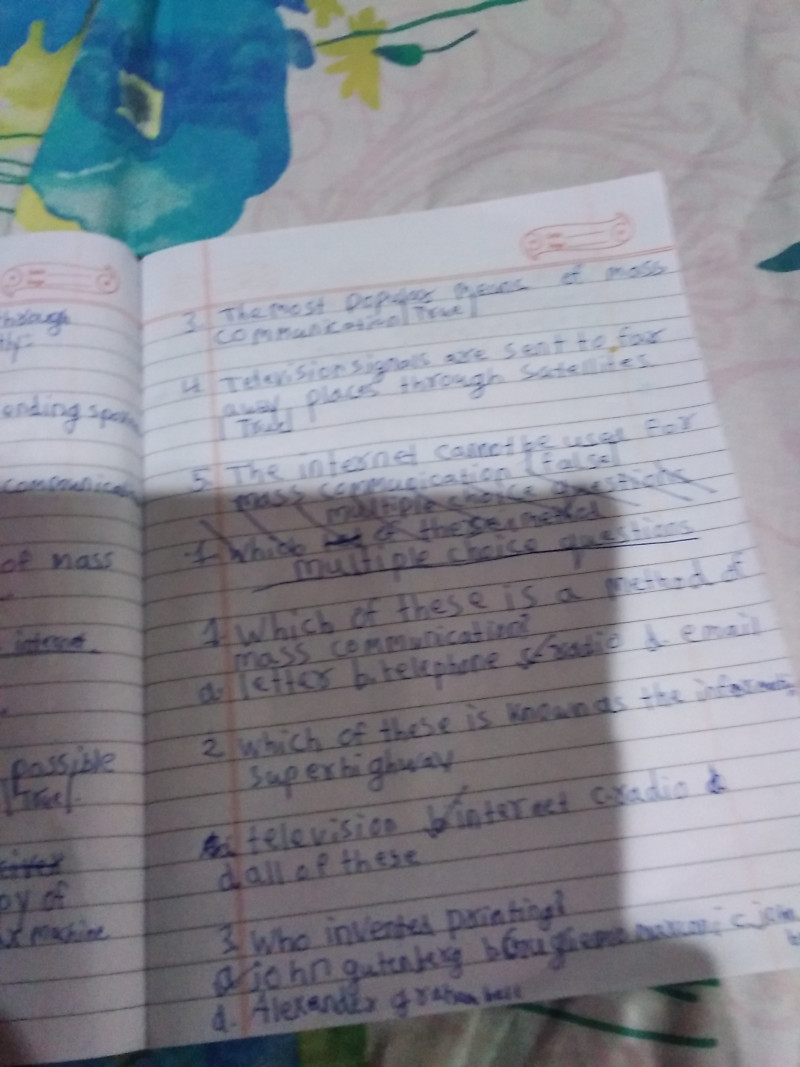 through
ending
of mass
internet.
possible
[True].
py of
machine
3. The most popular means of mass
communication [True]
4. Television signals are sent to far
away places through satellites
[True]
5. The internet cannot be used for
mass communication [false]
multiple choice questions
1. Which of these
multiple choice questions
1. Which of these is a method of
mass communication?
a. letter b. telephone c. radio d. email
2. Which of these is known as the
superhighway
television b. internet c. radio
d. all of these
3. Who invented printing?
a. john gutenberg b.
d. Alexander graham bell